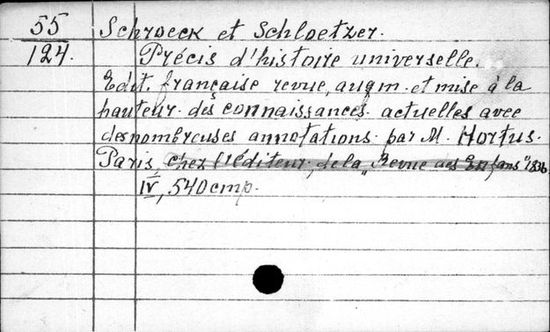 55 Schroeck et Schloetzer.
124. Précis d'histoire universelle.
Edit. française revue, augm. et mise à la
hauteur des connaissances actuelles avec
des nombreuses annotations par M. Hortus.
Paris, chez l'éditeur, de la „Revue des Enfans" 1836
IV, 540 стр.